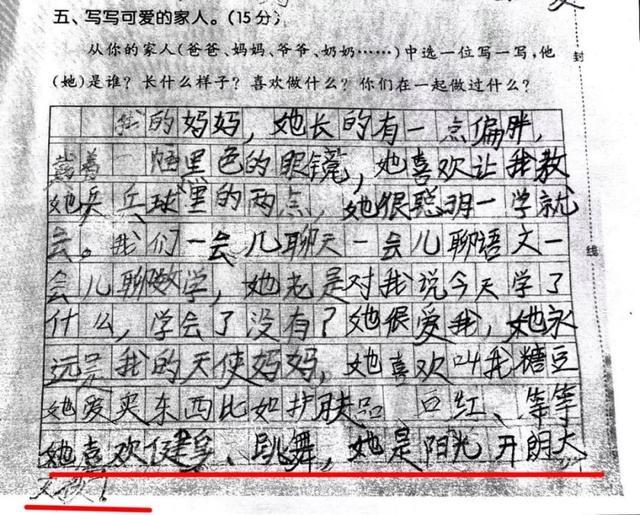 五、写写可爱的家人。(15分)
从你的家人(爸爸、妈妈、爷爷、奶奶……)中选一位写一写,他
(她)是谁?长什么样子?喜欢做什么?你们在一起做过什么?
我的妈妈,她长的有一点偏胖,
戴着一 黑色的眼镜,她喜欢让我教
她乒乓球里的两点,她很聪明一学就
会。我们一会儿聊天一会儿聊语文一
会儿聊数学,她老是对我说今天学了
什么,学会了没有?她很爱我,她永
远是我的天使妈妈,她喜欢叫我糖豆
她爱买东西比如护肤品 口红、等等
她喜欢健身、跳舞,她是阳光开朗大
封
线